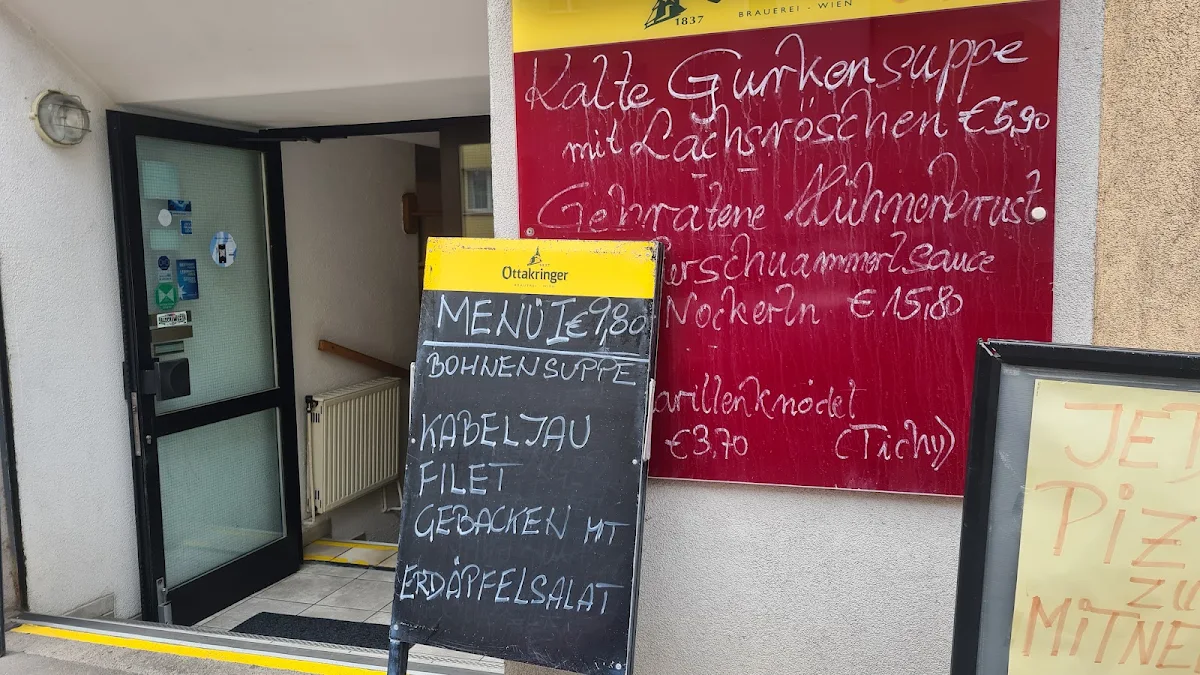 1837
BRAUEREI - WIEN
Kalte Gurkensuppe
mit Lachsröschen €5,90
Gebratene Hühnerbrust
erschwammerlsauce
Nockerln €15,80
arillenknödel
€3.70 (Tichy)
Ottakringer
MENÜ I €9,80
BOHNENSUPPE
KABELJAU
FILET
GEBACKEN MIT
ERDÄPFELSALAT
JET
PIZ
ZU
MITNE